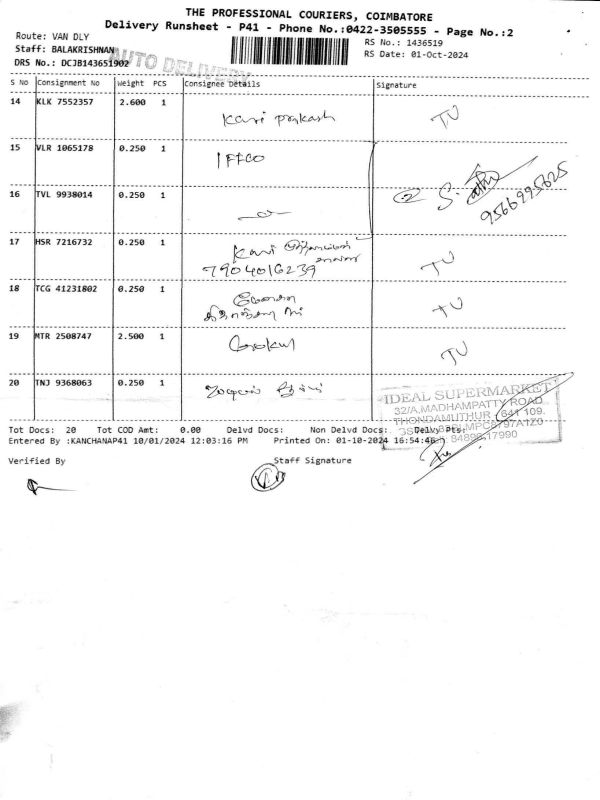 THE PROFESSIONAL COURIERS, COIMBATORE
Delivery Runsheet - P41 - Phone No.:0422-3505555 - Page No.:2
Route: VAN DLY
RS No.: 1436519
Staff: BALAKRISHNAN
RS Date: 01-Oct-2024
DRS No.: DCJB143651902
AUTO DELIVERY
S No Consignment No Weight PCS Consignee Details Signature
14 KLK 7552357 2.600 1 Kavi Prakash TV
15 VLR 1065178 0.250 1 IFFCO
16 TVL 9938014 0.250 1 ② S.
9566995625
17 HSR 7216732 0.250 1 Kavi TV
7904016239
18 TCG 41231802 0.250 1 TV
19 MTR 2508747 2.500 1 கோகுல் TV
20 TNJ 9368063 0.250 1
IDEAL SUPERMARKET
32/A.MADHAMPATTY ROAD
THONDAMUTHUR, 641 109.
84898 17990
Tot Docs: 20 Tot COD Amt: 0.00 Delvd Docs: Non Delvd Docs: Delvy Pts:
Entered By :KANCHANAP41 10/01/2024 12:03:16 PM Printed On: 01-10-2024 16:54:46
Verified By Staff Signature